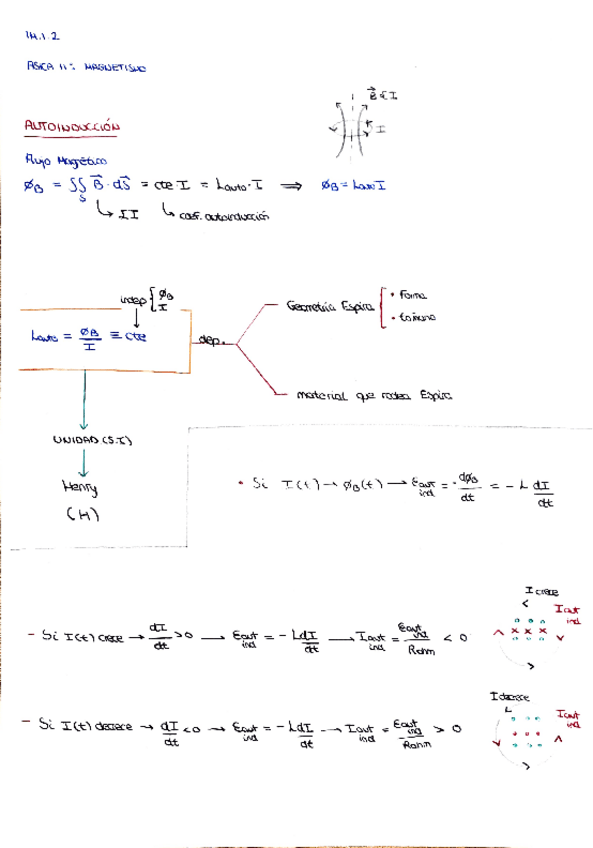 14.1.2
FÍSICA II: MAGNETISMO
B⃗ ∈ I
I
AUTOINDUCCIÓN
Flujo Magnético
ØB = ∬S B⃗ · dS⃗ = cte I = Lauto · I ⟹ ØB = Lauto I
↳ II ↳ coef. autoinducción
indep { ØB I
Geometría Espira [ • Forma • tamaño
Lauto = ØB/I ≡ cte
dep.
material que rodea Espira
UNIDAD (S.I)
Henry
(H)
• Si I(t) → ØB(t) → Eaut ind = -dØB/dt = -L dI/dt
I crece
I aut ind
- Si I(t) crece → dI/dt > 0 → Eaut ind = -L dI/dt → Iaut ind = Eaut ind/Rohm < 0
x x x
I decrece
I aut ind
- Si I(t) decrece → dI/dt < 0 → Eaut ind = -L dI/dt → Iaut ind = Eaut ind/Rohm > 0